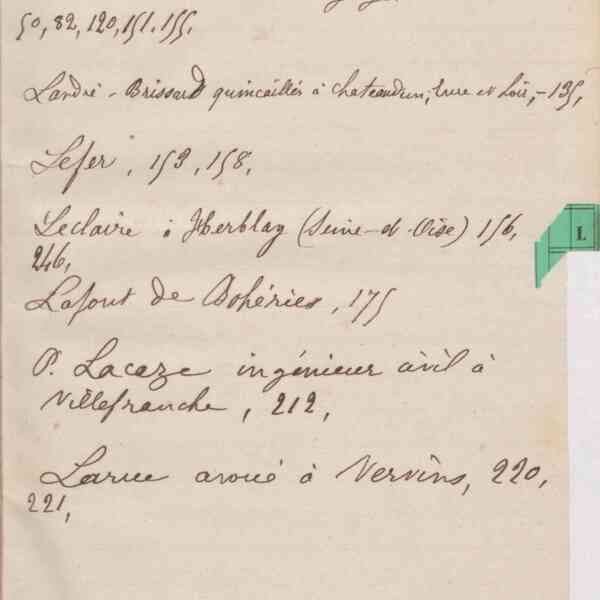 50, 82, 120, 151, 155,
Landré - Brissard quincaillér à Chateaudun, Eure et Loir, - 135,
Lefer, 153, 158,
Leclaire à Herblay (Seine-et-Oise) 156,
246,
L
Lafont de Bohéries, 175
P. Lacaze ingénieur civil à
Villefranche, 212,
Larue avoué à Vervins, 220,
221,